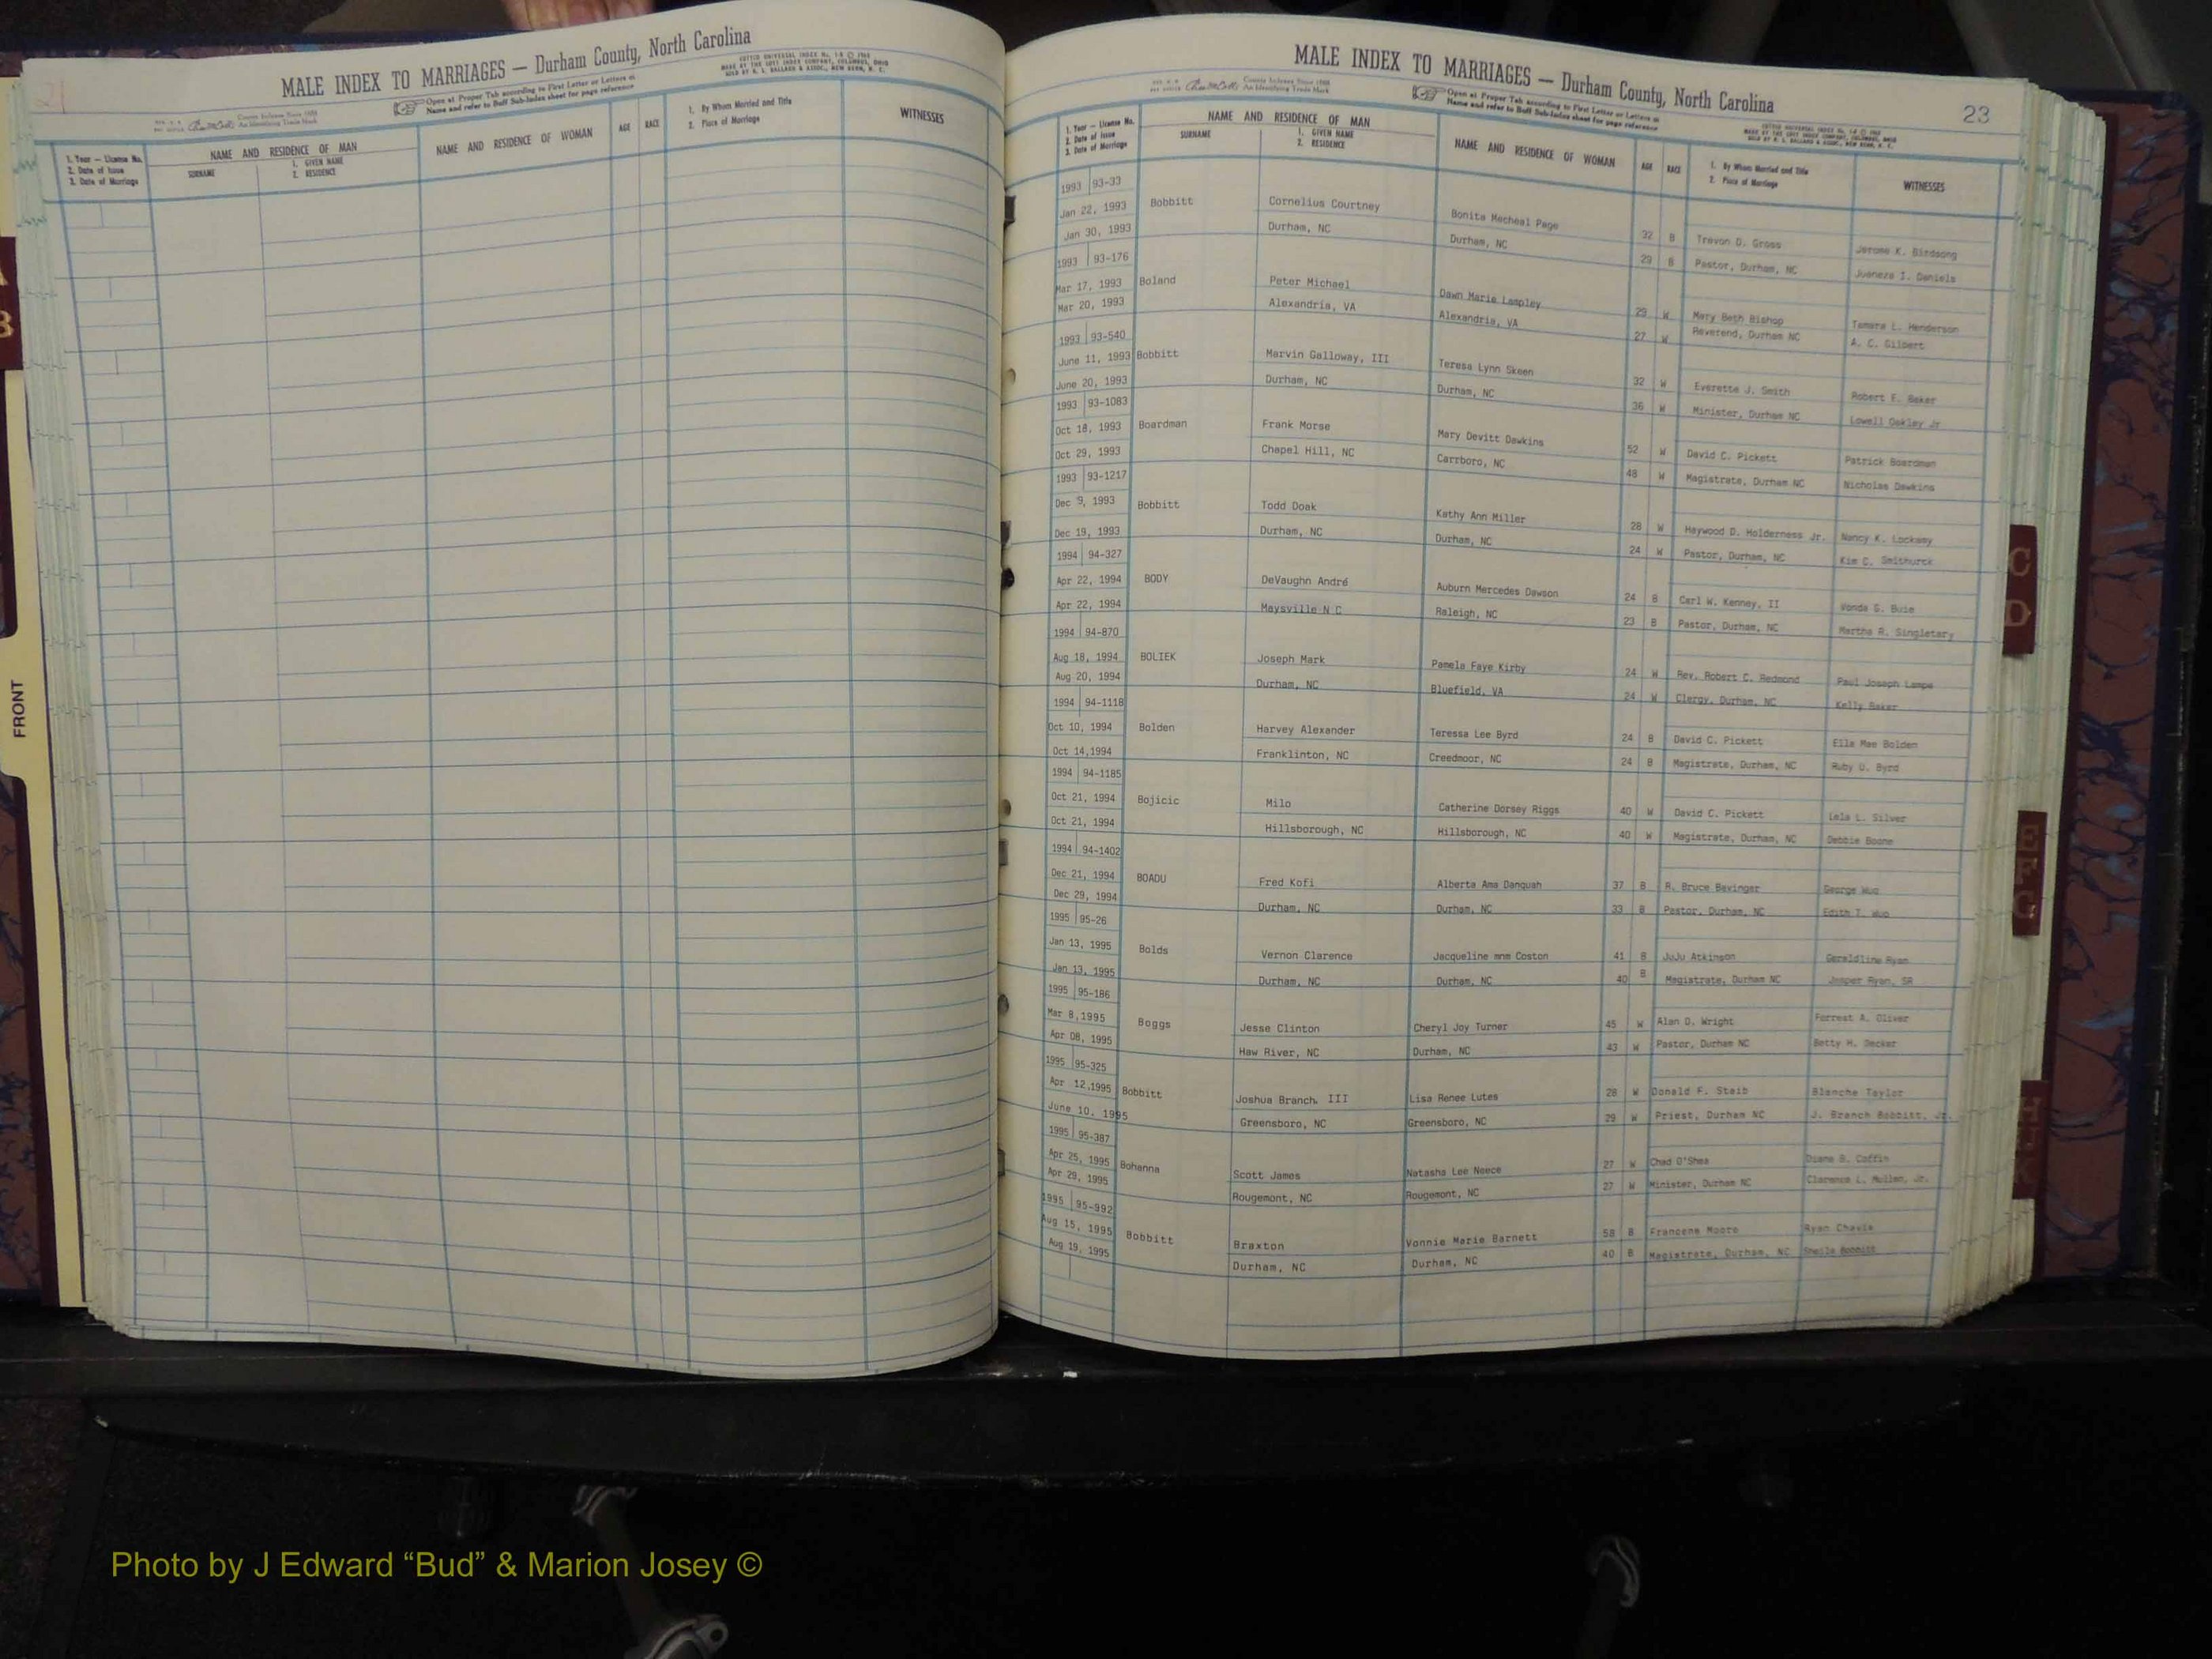 21
MALE INDEX TO MARRIAGES — Durham County, North Carolina
Open at Proper Tab according to First Letter or Letters in
Name and refer to Buff Sub-Index sheet for page reference
COTT'S UNIVERSAL INDEX
MADE BY THE COTT INDEX COMPANY, COLUMBUS, OHIO
SOLD BY
1. Year — License No.
2. Date of Issue
3. Date of Marriage
NAME AND RESIDENCE OF MAN
SURNAME
1. GIVEN NAME
2. RESIDENCE
NAME AND RESIDENCE OF WOMAN
AGE
RACE
1. By Whom Married and Title
2. Place of Marriage
WITNESSES
MALE INDEX TO MARRIAGES — Durham County, North Carolina
23
Open at Proper Tab according to First Letter or Letters in
Name and refer to Buff Sub-Index sheet for page reference
1. Year — License No.
2. Date of Issue
3. Date of Marriage
NAME AND RESIDENCE OF MAN
SURNAME
1. GIVEN NAME
2. RESIDENCE
NAME AND RESIDENCE OF WOMAN
AGE
RACE
1. By Whom Married and Title
2. Place of Marriage
WITNESSES
1993 93-33
Jan 22, 1993 Bobbitt Cornelius Courtney Bonita Mecheal Page 32 B Trevon D. Gross Jerome K. Birdsong
Jan 30, 1993 Durham, NC Durham, NC 29 B Pastor, Durham, NC Juaneza I. Daniels
1993 93-176
Mar 17, 1993 Boland Peter Michael Dawn Marie Lampley 29 W Mary Beth Bishop Tamara L. Henderson
Mar 20, 1993 Alexandria, VA Alexandria, VA 27 W Reverend, Durham NC A. C. Gilbert
1993 93-540
June 11, 1993 Bobbitt Marvin Galloway, III Teresa Lynn Skeen 32 W Everette J. Smith Robert E. Baker
June 20, 1993 Durham, NC Durham, NC 36 W Minister, Durham NC Lowell Oakley Jr
1993 93-1083
Oct 18, 1993 Boardman Frank Morse Mary Devitt Dawkins 52 W David C. Pickett Patrick Boardman
Oct 29, 1993 Chapel Hill, NC Carrboro, NC 48 W Magistrate, Durham NC Nicholas Dawkins
1993 93-1217
Dec 9, 1993 Bobbitt Todd Doak Kathy Ann Miller 28 W Haywood D. Holderness Jr. Nancy K. Lockamy
Dec 19, 1993 Durham, NC Durham, NC 24 W Pastor, Durham, NC Kim C. Smithurck
1994 94-327
Apr 22, 1994 BODY DeVaughn André Auburn Mercedes Dawson 24 B Carl W. Kenney, II Vonda G. Buie
Apr 22, 1994 Maysville N C Raleigh, NC 23 B Pastor, Durham, NC Martha R. Singletary
1994 94-870
Aug 18, 1994 BOLIEK Joseph Mark Pamela Faye Kirby 24 W Rev. Robert C. Redmond Paul Joseph Lampe
Aug 20, 1994 Durham, NC Bluefield, VA 24 W Clergy, Durham, NC Kelly Baker
1994 94-1118
Oct 10, 1994 Bolden Harvey Alexander Teressa Lee Byrd 24 B David C. Pickett Ella Mae Bolden
Oct 14,1994 Franklinton, NC Creedmoor, NC 24 B Magistrate, Durham, NC Ruby O. Byrd
1994 94-1185
Oct 21, 1994 Bojicic Milo Catherine Dorsey Riggs 40 W David C. Pickett Lela L. Silver
Oct 21, 1994 Hillsborough, NC Hillsborough, NC 40 W Magistrate, Durham, NC Debbie Boone
1994 94-1402
Dec 21, 1994 BOADU Fred Kofi Alberta Ama Danquah 37 B R. Bruce Bavinger George Wuo
Dec 29, 1994 Durham, NC Durham, NC 33 B Pastor, Durham, NC Edith T. Wuo
1995 95-26
Jan 13, 1995 Bolds Vernon Clarence Jacqueline mnm Coston 41 B JuJu Atkinson Geraldline Ryan
Jan 13, 1995 Durham, NC Durham, NC 40 B Magistrate, Durham NC Jesper Ryan, SR
1995 95-186
Mar 8,1995 Boggs Jesse Clinton Cheryl Joy Turner 45 W Alan D. Wright Forrest A. Oliver
Apr 08, 1995 Haw River, NC Durham, NC 43 W Pastor, Durham NC Betty H. Decker
1995 95-325
Apr 12,1995 Bobbitt Joshua Branch, III Lisa Renee Lutes 28 W Donald F. Staib Blanche Taylor
June 10, 1995 Greensboro, NC Greensboro, NC 29 W Priest, Durham NC J. Branch Bobbitt, Jr.
1995 95-387
Apr 25, 1995 Bohanna Scott James Natasha Lee Neece 27 W Chad O'Shea Diane B. Coffin
Apr 29, 1995 Rougemont, NC Rougemont, NC 27 W Minister, Durham NC Clarence L. Mullen, Jr.
1995 95-992
Aug 15, 1995 Bobbitt Braxton Vonnie Marie Barnett 58 B Francene Moore Ryan Chavis
Aug 19, 1995 Durham, NC Durham, NC 40 B Magistrate, Durham, NC Sheila Bobbitt
FRONT
B
C
D
E
F
G
H
Photo by J Edward “Bud” & Marion Josey ©